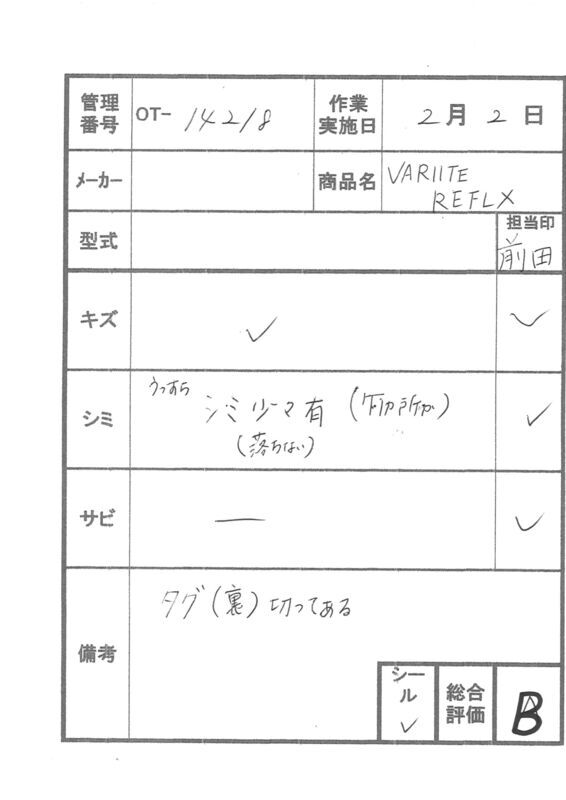 管理番号 OT- 14218 作業実施日 2月2日
メーカー 商品名 VARIITE
REFLX
型式 担当印
前田
キズ ✓ ✓
うっすら
シミ シミ少々有 ✓
(落ちない)
サビ — ✓
備考 タグ(裏)切ってある
シール ✓ 総合評価 B